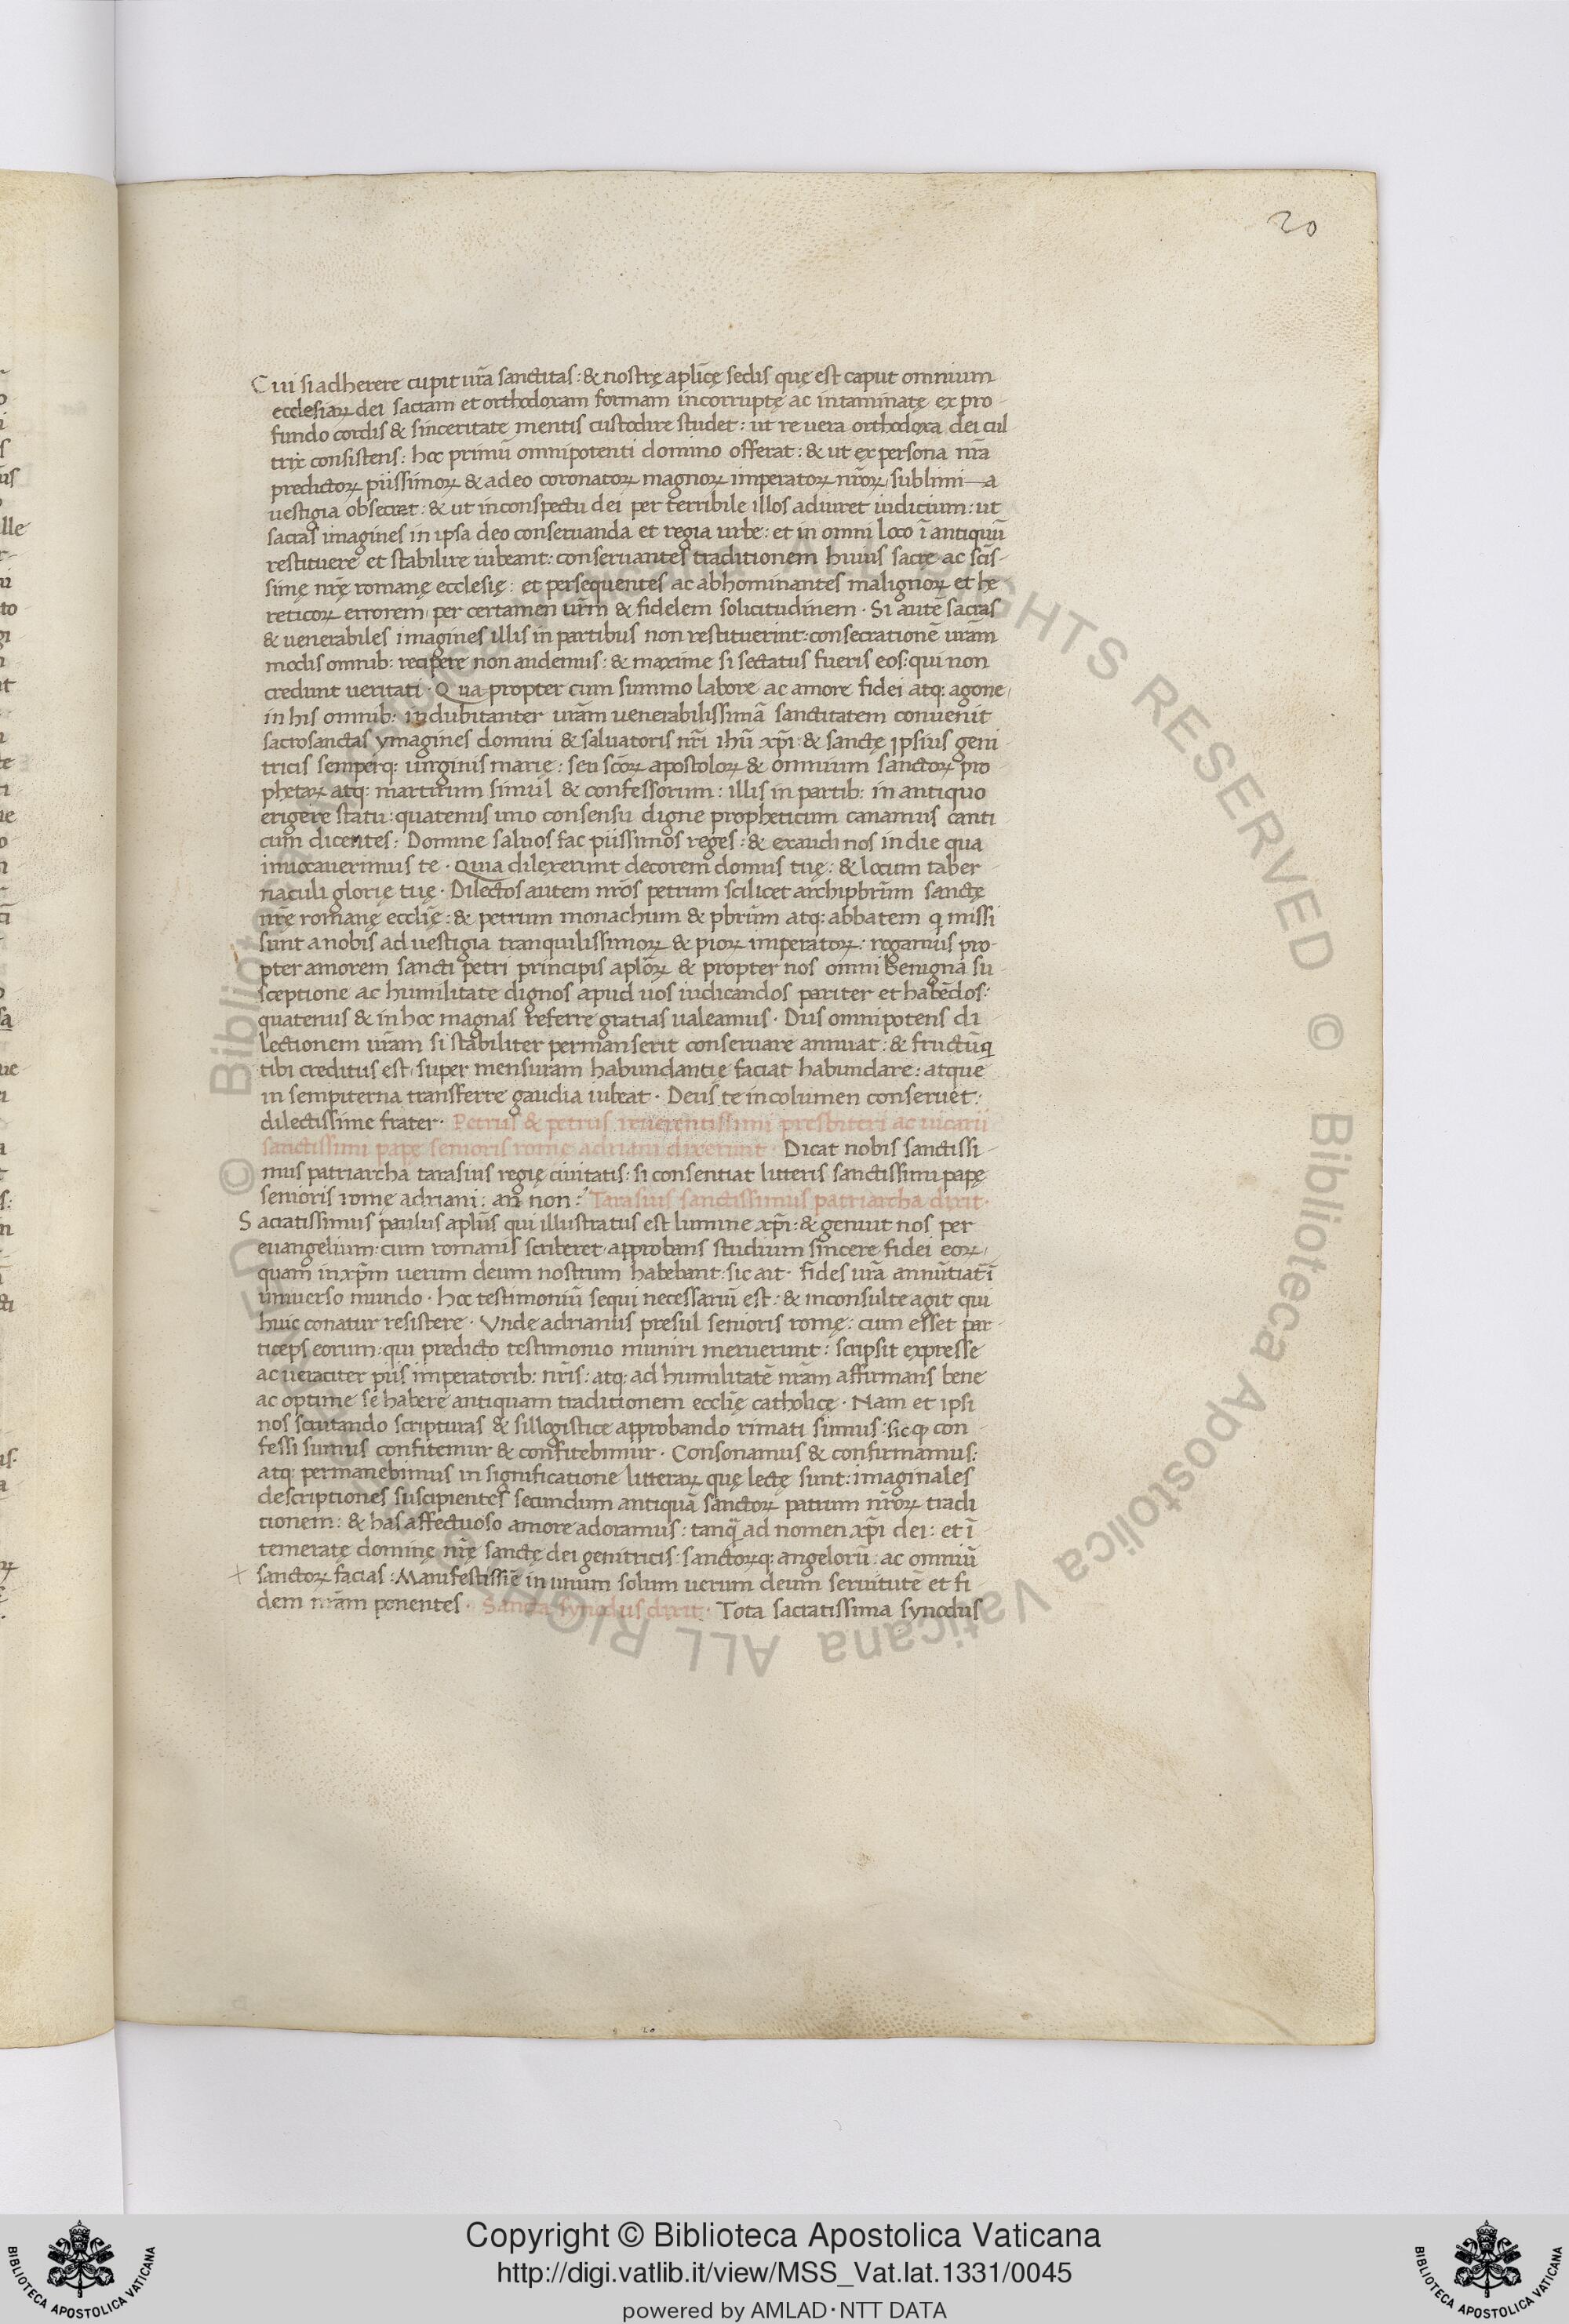 20
Cui si adherere cupit ur̄a sanctitas: & nostrę apl̄icę sedis quę est caput omnium
ecclesiaꝝ dei sacram et orthodoxam formam incorruptę ac intaminatę ex pro
fundo cordis & sinceritate mentis custodire studet: ut re uera orthodoxa dei cul
trix consistens: hoc primū omnipotenti domino offerat: & ut ex persona nr̄a
predictoꝝ piissimoꝝ & a deo coronatoꝝ magnoꝝ imperatoꝝ nr̄oꝝ, sublimi—a
uestigia obsecret: & ut in conspectu dei per terribile illos adiuret iudicium: ut
sacras imagines in ipsa deo conseruanda et regia urbe: et in omni loco ī antiquū
restituere et stabilire iubeant: conseruantes traditionem huius sacrę ac scīs-
simę nr̄ę romanę ecclesię: et persequentes ac abhominantes malignoꝝ et he
reticoꝝ errorem, per certamen ur̄m & fidelem solicitudinem · Si autē sacras
& uenerabiles imagines illis in partibus non restituerint: consecrationē ur̄am
modis omnib: recipere non audemus: & maxime si sectatus fueris eos: qui non
credunt ueritati · Qua propter cum summo labore ac amore fidei atq: agone,
in his omnib: indubitanter ur̄am uenerabilissimā sanctitatem conuenit
sacrosanctas ymagines domini & saluatoris nr̄i ihū xp̄i: & sanctę ipsius geni
tricis semperq: uirginis marię: seu scōꝝ apostoloꝝ & omnium sanctoꝝ pro
phetaꝝ atq: martirum simul & confessorum: illis in partib: in antiquo
erigere statu: quatenus uno consensu digne propheticum canamus canti
cum dicentes: Domine saluos fac piissimos reges: & exaudi nos in die qua
inuocauerimus te · Quia dilexerunt decorem domus tuę: & locum taber
naculi glorię tuę · Dilectos autem nr̄os petrum scilicet archipbr̄um sanctę
nr̄ę romanę eccl̄ię: & petrum monachum & pbr̄um atq: abbatem q̇ missi
sunt a nobis ad uestigia tranquilissimoꝝ & pioꝝ imperatoꝝ: rogamus pro-
pter amorem sancti petri principis apl̄oꝝ & propter nos omni benigna su
sceptione ac humilitate dignos apud uos iudicandos pariter et habēdos:
quatenus & in hoc magnas referre gratias ualeamus · Dūs omnipotens di
lectionem ur̄am si stabiliter permanserit conseruare annuat: & fructū q̇
tibi creditus est, super mensuram habundantię faciat habundare: atque
in sempiterna transferre gaudia iubeat · Deus te incolumen conseruet:
dilectissime frater · Petrus & petrus reuerentissimi presbiteri ac uicarii
sanctissimi pape senioris rome adriani dixerunt · Dicat nobis sanctissi-
mus patriarcha tarasius regię ciuitatis: si consentiat litteris sanctissimi papę
senioris romę adriani: an non: Tarasius sanctissimus patriarcha dixit·
Sacratissimus paulus apl̄us qui illustratus est lumine xp̄i: & genuit nos per
euangelium: cum romanis scriberet, approbans studium sincere fidei eoꝝ,
quam in xp̄m uerum deum nostrum habebant: sic ait · fides ur̄a annūtiat ī
uniuerso mundo · hoc testimoniū sequi necessariū est: & inconsulte agit qui
huic conatur resistere · Vnde adrianus presul senioris romę: cum esset par-
ticeps eorum: qui predicto testimonio muniri meruerunt: scripsit expresse
ac ueraciter piis imperatorib: nr̄is: atq: ad humilitatē nr̄am affirmans bene
ac optime se habere antiquam traditionem eccl̄ię catholicę · Nam et ipsi
nos scrutando scripturas & sillogistice approbando rimati sumus: sicq̇ con
fessi sumus confitemur & confitebimur · Consonamus & confirmamus:
atq: permanebimus in significatione litteraꝝ quę lectę sunt: imaginales
descriptiones suscipientes secundum antiquā sanctoꝝ patrum nr̄oꝝ tradi
tionem: & has affectuoso amore adoramus: tanq̄ ad nomen xp̄i dei: et ī
temeratę dominę nr̄ę sanctę dei genitricis: sanctoꝝq: angelorū: ac omniū
sanctoꝝ facias: Manifestissīe in unum solum uerum deum seruitutē et fi
dem nr̄am ponentes · Sancta synodus dixit · Tota sacratissima synodus
20
© Biblioteca Apostolica Vaticana ALL RIGHTS RESERVED
Copyright © Biblioteca Apostolica Vaticana
http://digi.vatlib.it/view/MSS_Vat.lat.1331/0045
powered by AMLAD·NTT DATA
BIBLIOTECA APOSTOLICA VATICANA
BIBLIOTECA APOSTOLICA VATICANA